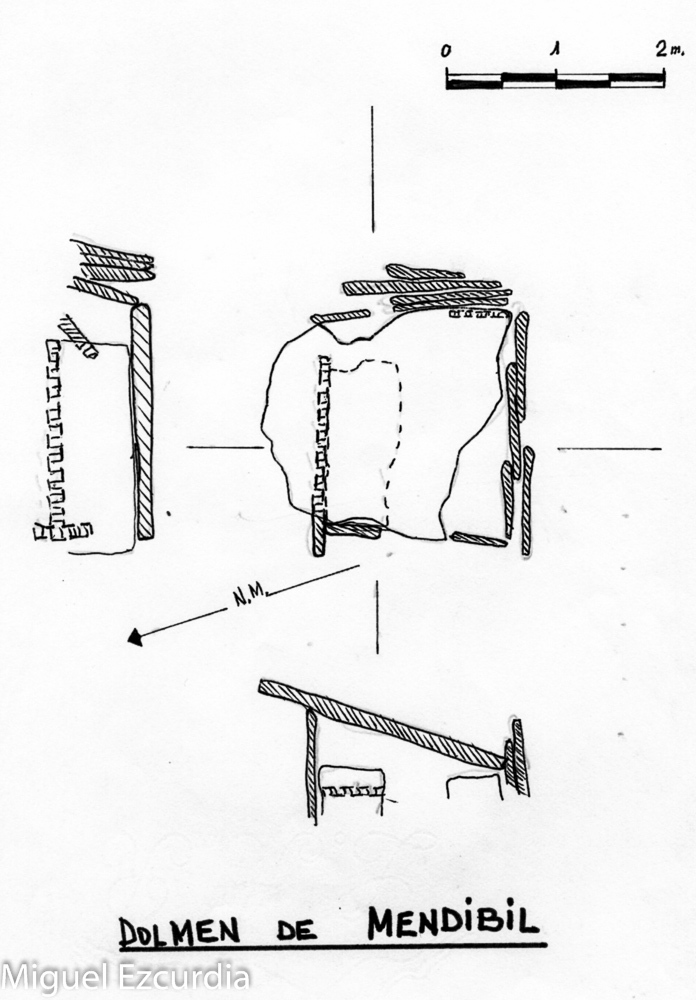 0 1 2 m.
N.M.
DOLMEN DE MENDIBIL
Miguel Ezcurdia